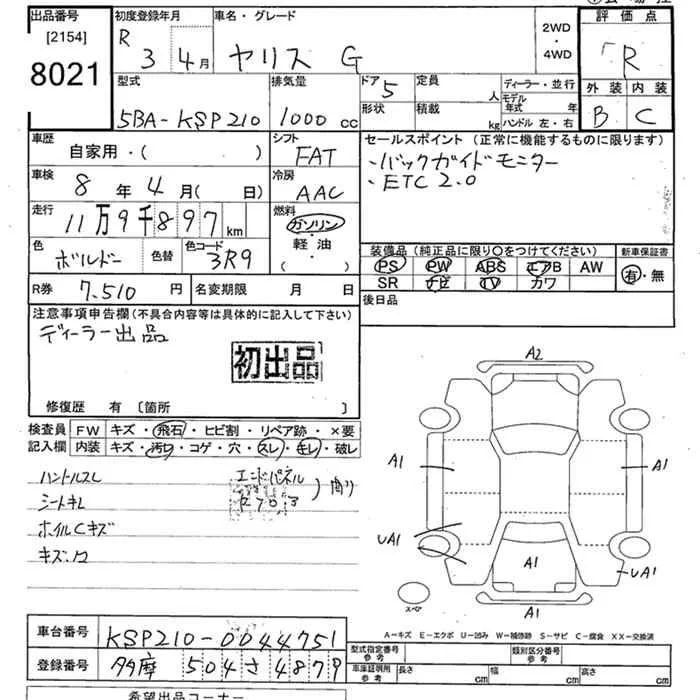 出品番号
[2154]
8021
初度登録年月
R 3 4月
車名・グレード
ヤリス G
2WD
・
4WD
評価点
R
外装 内装
B C
型式
5BA-KSP210
排気量
1000 cc
ドア 5
形状
定員 人
積載 kg
ディーラー・並行
モデル年式 年
ハンドル 左・右
車歴
自家用・( )
シフト
FAT
車検
8年 4月( 日)
冷房
AAC
走行
11万9千897 km
燃料
ガソリン
・
軽油
・
( )
色
ボルドー
色替
色コード
3R9
セールスポイント (正常に機能するものに限ります)
・バックガイドモニター
・ETC 2.0
装備品(純正品に限り○をつけてください)
PS PW ABS エアB AW
SR ナビ TV カワ
新車保証書
有・無
R券 7,510 円
名変期限 月 日
後日品
注意事項申告欄(不具合内容等は具体的に記入して下さい)
ディーラー出品
初出品
修復歴 有 〔箇所 〕
検査員記入欄
FW キズ・飛石・ヒビ割・リペア跡・×要
内装 キズ・汚れ・コゲ・穴・スレ・キレ・破レ
ハンドルスレ
シートキレ
ホイルCキズ
エンドパネル
A2
A1
A1
UA1
A1
UA1
A1
スペア
A-キズ E-エクボ U-凹み W-補修跡 S-サビ C-腐食 XX-交換済
車台番号 KSP210-0044751
登録番号 多摩 504 さ 4879
型式指定番号 参考
類別区分番号 参考
車庫証明用 参考
長さ cm
幅 cm
高さ cm
希望出品コーナー